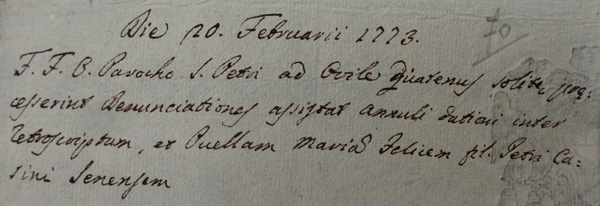 Die 20. Februarii 1773.
70
F. F. B. Parocho S. Petri ad Ovile quatenus solitę prę-
cesserint denunciationes assistat annuli dationi inter
retroscriptum, et Puellam Mariã Felicem fil. Petri Ca-
sini Senensem